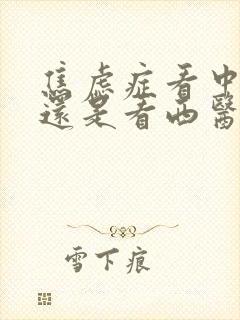 焦虑症看中
還是看西醫
雪下痕